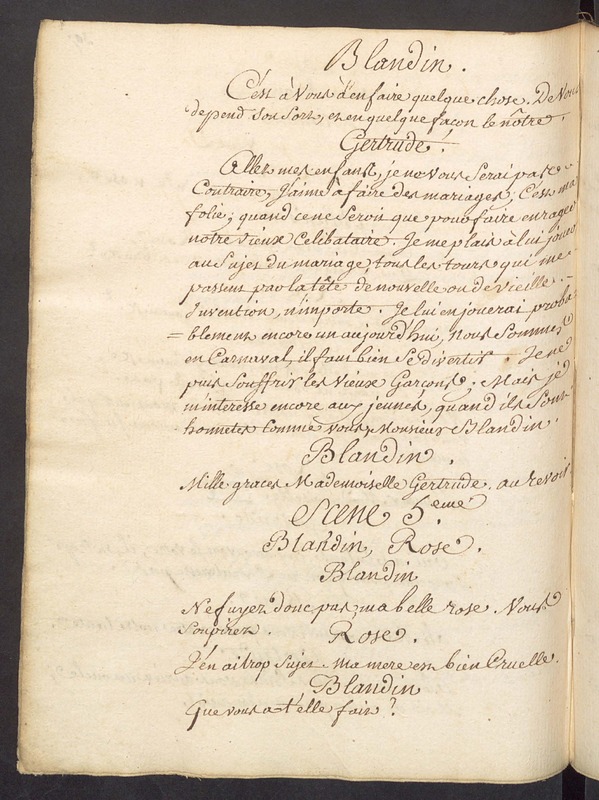 Blandin.
C'est à Vous d'en faire quelque chose. De Vous
depend son sort, et en quelque facon le nôtre.
Gertrude.
Allez mes enfans, je ne vous serai pas
Contraire, J'aime à faire des mariages; C'est ma
folie; quand ce ne seroit que pour faire enrager
notre vieux Celibataire. Je me plais à lui jouer
au Sujet du mariage, tous les tours qui me
passent par la tête de nouvelle ou de vieille
Invention, n'importe. Je lui en jouerai proba
=blement encore un aujourd'hui, Nous Sommes
en Carnaval, il faut bien Se divertir. Je ne
puis Souffrir les Vieux Garçons; Mais je
m'interesse encore aux jeunes, quand ils Sont
honnetes Comme vous, Monsieur Blandin.
Blandin.
Mille graces Mademoiselle Gertrude. au revoir.
Scene 5.eme
Blandin, Rose.
Blandin
Ne fuyez donc pas, ma belle rose. Vous
Soupirez.
Rose.
J'en ai trop Sujet. Ma mere est bien Cruelle.
Blandin
Que vous a-t'elle fait?